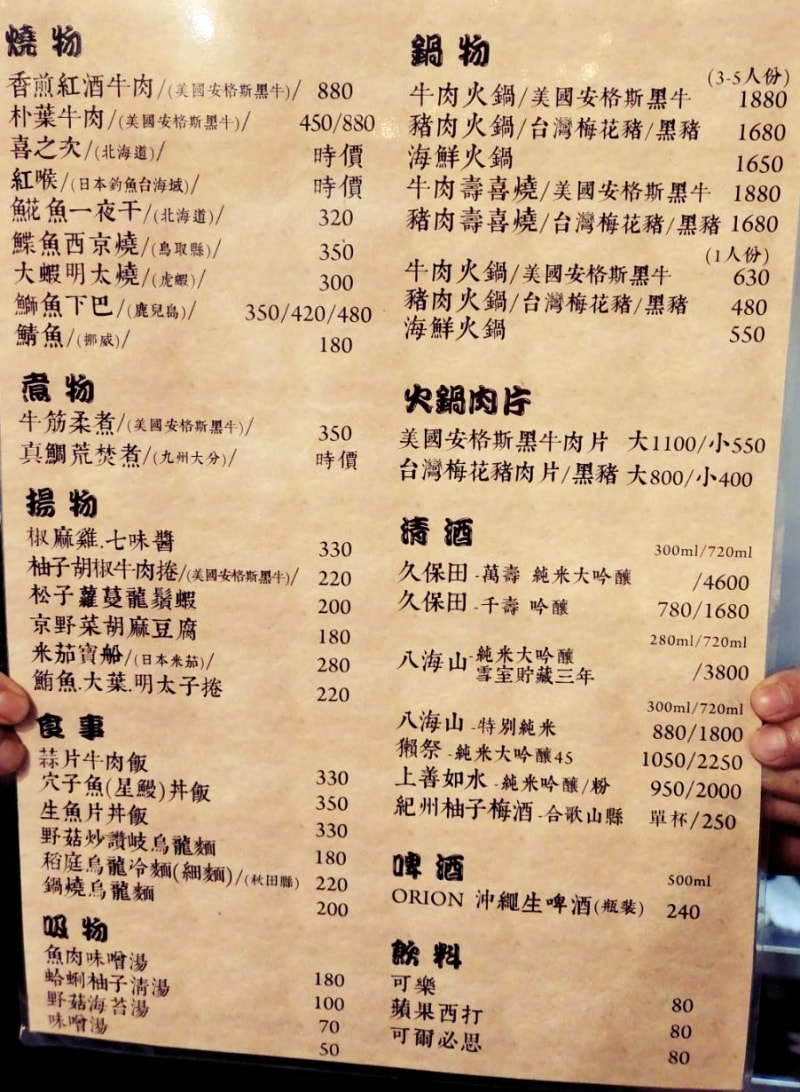 燒物
香煎紅酒牛肉/(美國安格斯黑牛)/ 880
朴葉牛肉/(美國安格斯黑牛)/ 450/880
喜之次/(北海道)/ 時價
紅喉/(日本釣魚台海域)/ 時價
𩸽花魚一夜干/(北海道)/ 320
鰈魚西京燒/(鳥取縣)/ 350
大蝦明太燒/(虎蝦)/ 300
鰤魚下巴/(鹿兒島)/ 350/420/480
鯖魚/(挪威)/ 180
煮物
牛筋柔煮/(美國安格斯黑牛)/ 350
真鯛荒焚煮/(九州大分)/ 時價
揚物
椒麻雞.七味醬 330
柚子胡椒牛肉捲/(美國安格斯黑牛)/ 220
松子蘿蔓龍鬚蝦 200
京野菜胡麻豆腐 180
米茄寶船/(日本米茄)/ 280
鮪魚.大葉.明太子捲 220
食事
蒜片牛肉飯 330
穴子魚(星鰻)丼飯 350
生魚片丼飯 330
野菇炒讚岐烏龍麵 180
稻庭烏龍冷麵(細麵)/(秋田縣) 220
鍋燒烏龍麵 200
吸物
魚肉味噌湯 180
蛤蜊柚子清湯 100
野菇海苔湯 70
味噌湯 50
鍋物
(3-5人份)
牛肉火鍋/美國安格斯黑牛 1880
豬肉火鍋/台灣梅花豬/黑豬 1680
海鮮火鍋 1650
牛肉壽喜燒/美國安格斯黑牛 1880
豬肉壽喜燒/台灣梅花豬/黑豬 1680
(1人份)
牛肉火鍋/美國安格斯黑牛 630
豬肉火鍋/台灣梅花豬/黑豬 480
海鮮火鍋 550
火鍋肉片
美國安格斯黑牛肉片 大1100/小550
台灣梅花豬肉片/黑豬 大800/小400
清酒
300ml/720ml
久保田-萬壽 純米大吟釀 /4600
久保田-千壽 吟釀 780/1680
280ml/720ml
八海山-純米大吟釀
雪室貯藏三年 /3800
300ml/720ml
八海山-特別純米 880/1800
獺祭-純米大吟釀45 1050/2250
上善如水-純米吟釀/粉 950/2000
紀州柚子梅酒-合歌山縣 單杯/250
啤酒
500ml
ORION 沖繩生啤酒(瓶裝) 240
飲料
可樂 80
蘋果西打 80
可爾必思 80